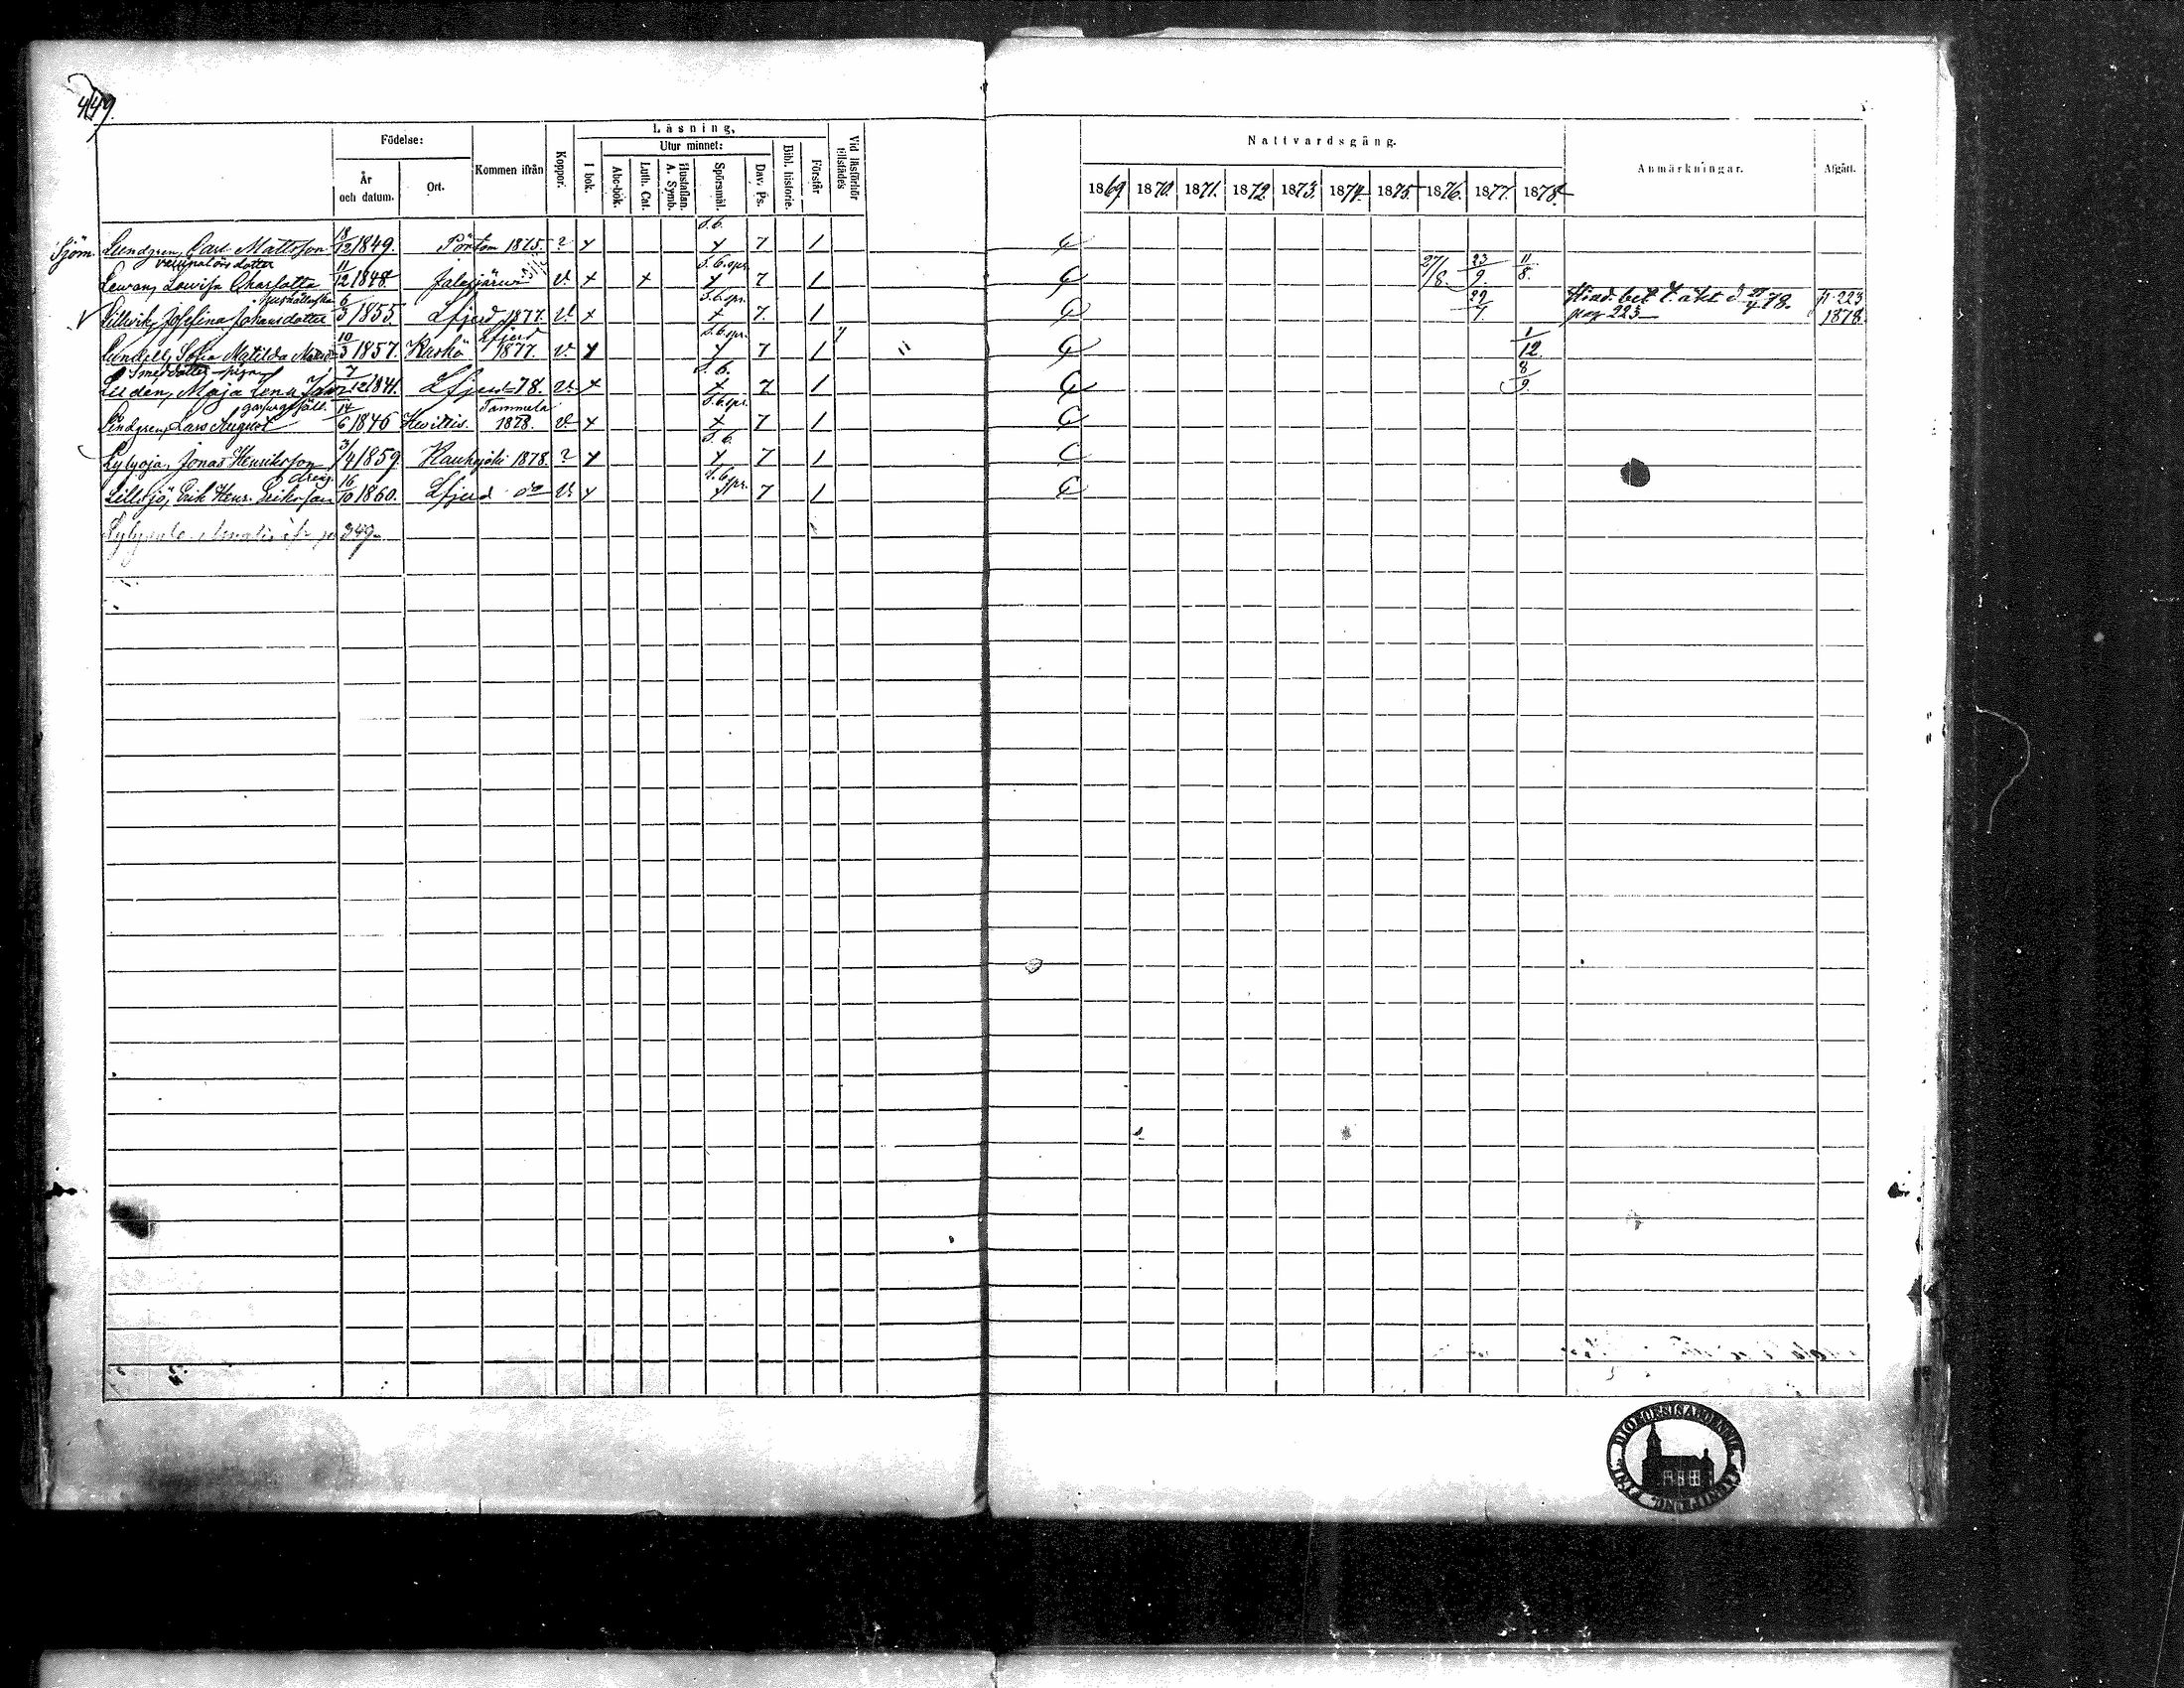 449.
Födelse:
År och datum.
Ort.
Kommen ifrån
Koppor.
Läsning,
I bok.
Utur minnet:
Abc-bok.
Luth. Cat.
Hustaflan. A. Symb.
Spörsmål.
Dav. Ps.
Bibl. historie.
Förstår
Vid läsförhör tillstädes
Nattvardsgång.
1869. 1870. 1871. 1872. 1873. 1874. 1875. 1876. 1877. 1878.
Anmärkningar.
Afgått.
Sjöm. Lundgren, Carl Mattsson 18/12 1849. Pörtom 1875. ? x S.b. x 7 1
vaccinatörsdotter
Lewan, Lovisa Charlotta 11/12 1848. Jalasjärvi v. x x S.b.spr. x 7 1 27/8. 23/9. 11/8.
Lillvik, Josefina Johansdotter 6/3 1855. Lfjerd 1877. v. x S.b.spr. x 7. 1 29/7. Hind. bet. t. äkt. d. 27/4 78. pag 223 fl. 223 1878.
Lundell, Sofia Matilda 10/3 1857. Kaskö Lfjerd 1877. v. x S.b.spr. x 7 1 1/12.
Smeddotter piga
Liden, Maja Lena 7/12 1841. Lfjerd 78. v. x S.b. x 7 1 8/9.
Lindgren, Lars August 14/6 1846 Hvittis. Tammela 1878. v x S.b.spr. x 7 1
Lylyoja, Jonas Henriksson 3/4 1859. Kauhajoki 1878. ? x S.b. x 7 1
dreng
Lillsjö, Erik Henr. Eriksson 16/10 1860. Lfjerd do v. x S.b.spr. x 7 1
349.
DIOECESIS ABOENSIS